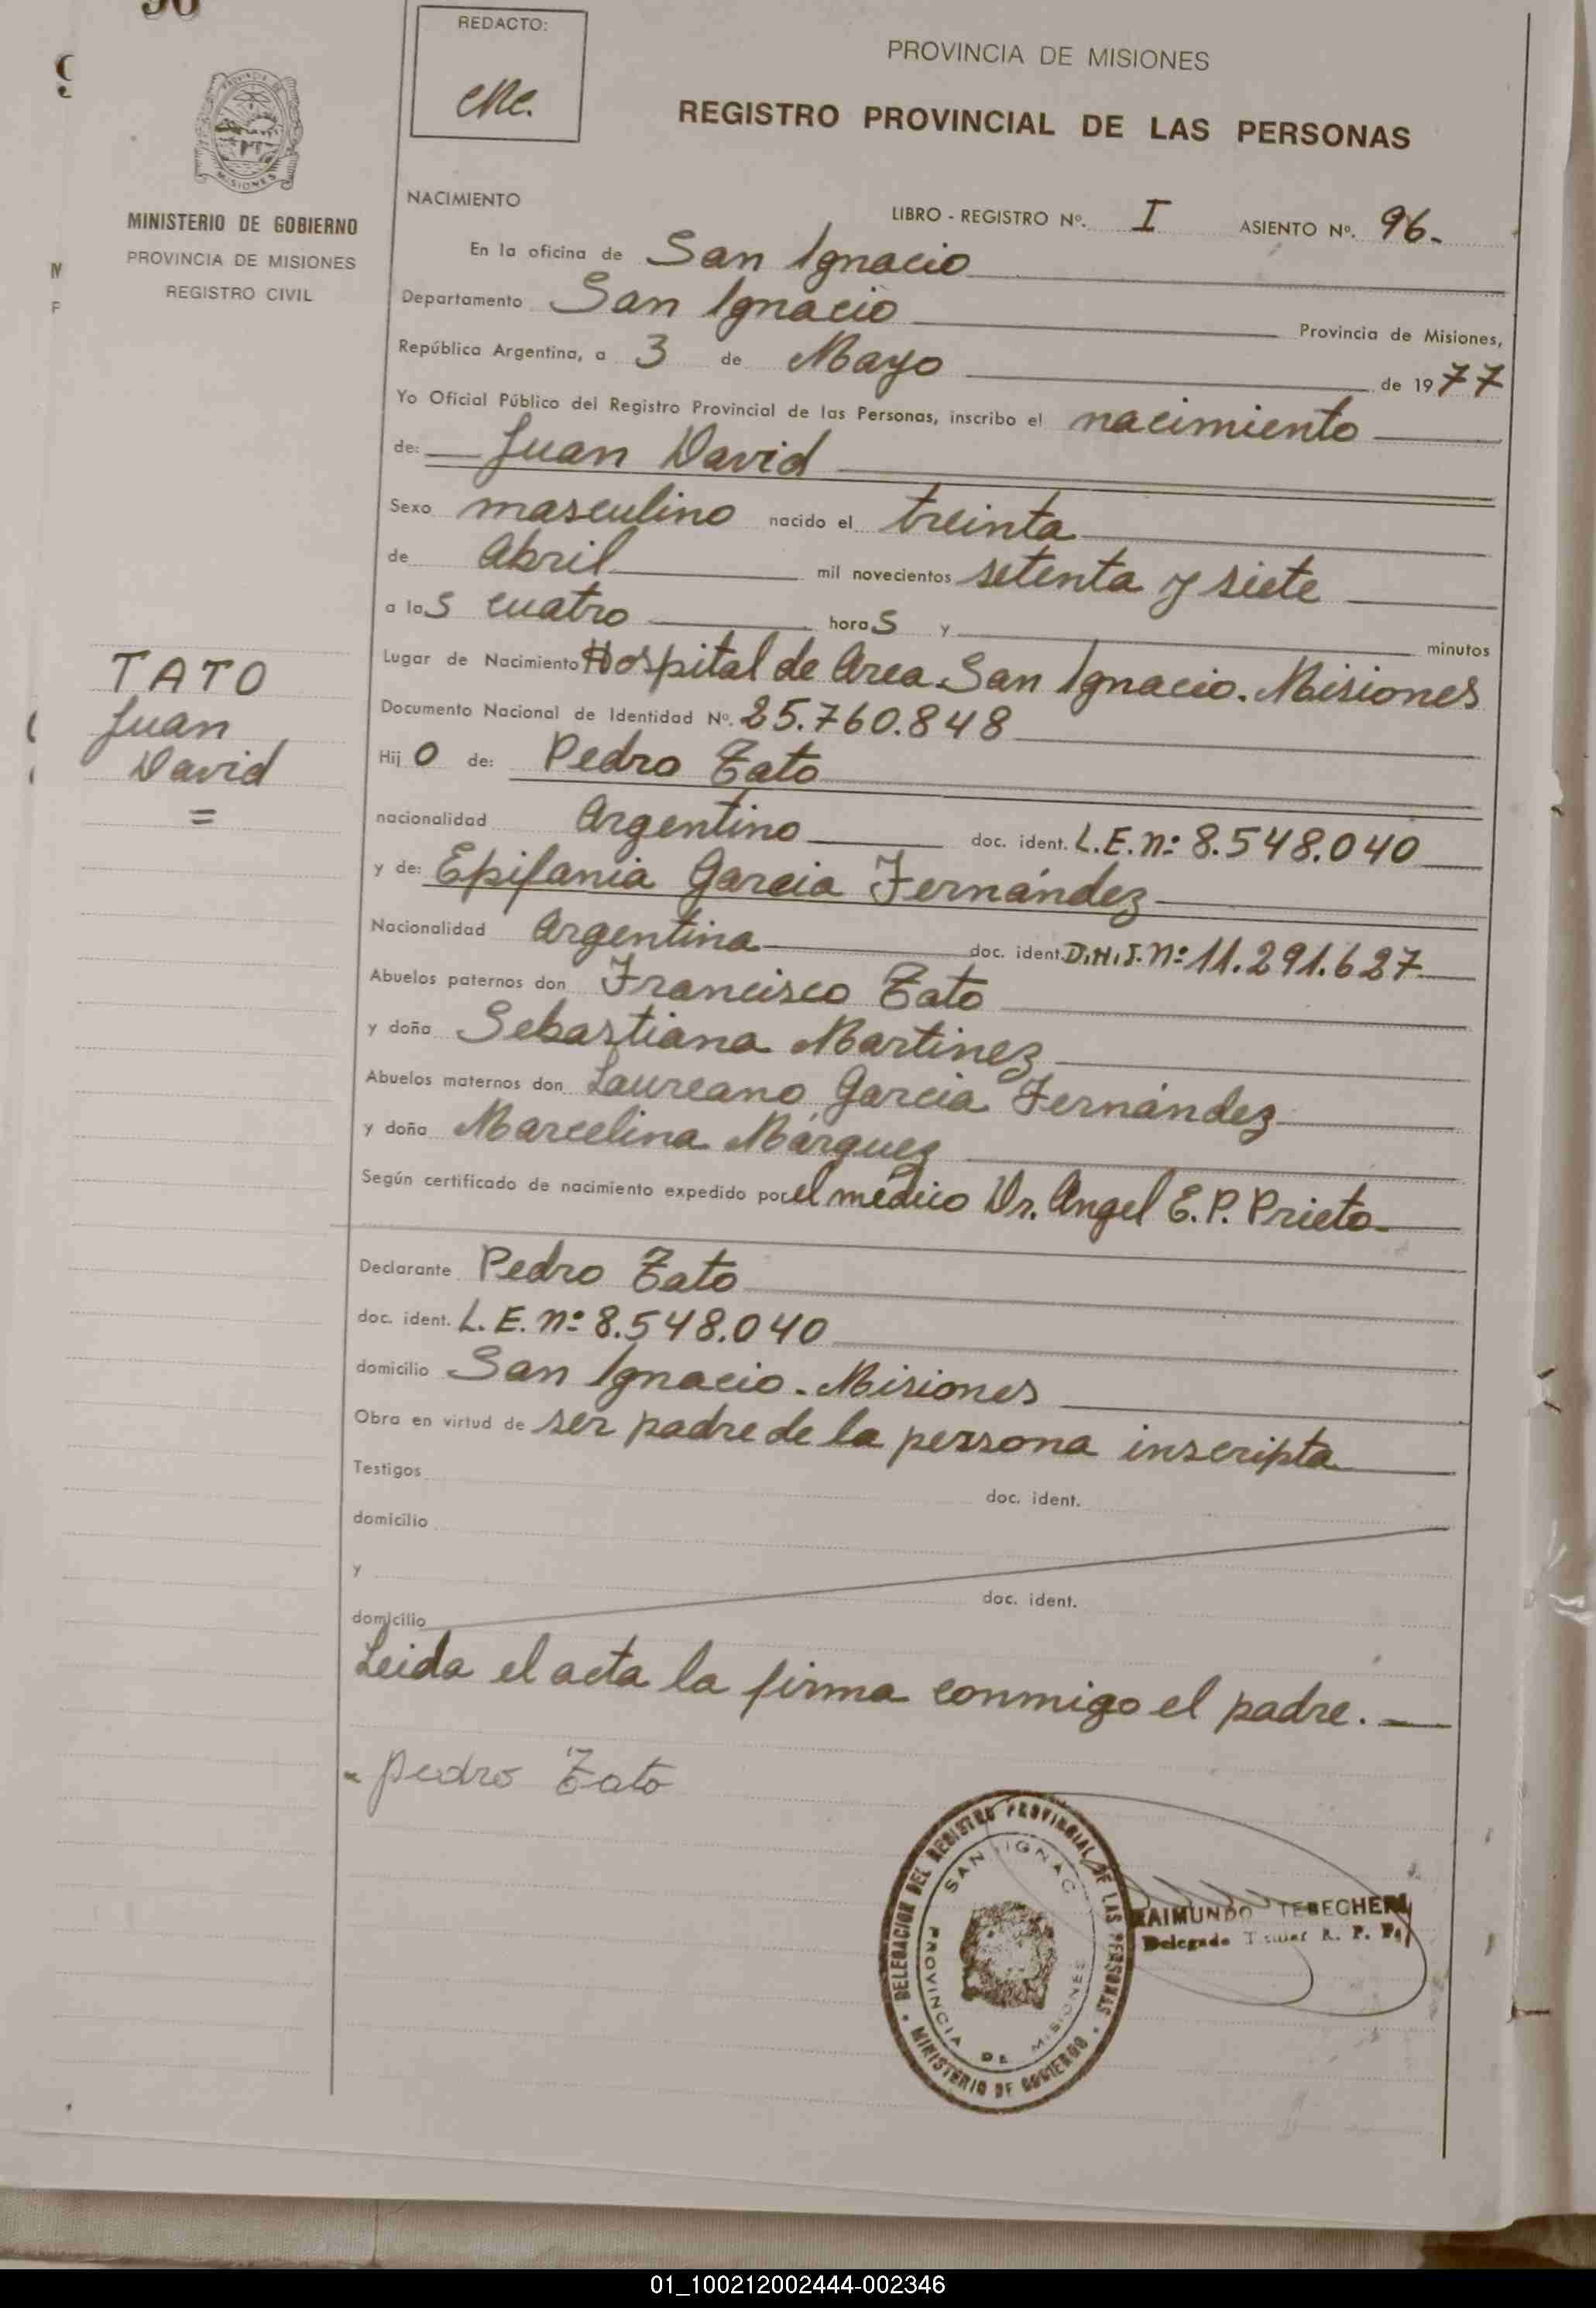 REDACTO:
PROVINCIA DE MISIONES
REGISTRO PROVINCIAL DE LAS PERSONAS
MISIONES
MINISTERIO DE GOBIERNO
PROVINCIA DE MISIONES
REGISTRO CIVIL
NACIMIENTO
LIBRO - REGISTRO Nº. I ASIENTO Nº. 96.
En la oficina de San Ignacio
Departamento San Ignacio Provincia de Misiones,
República Argentina, a 3 de Mayo de 1977
Yo Oficial Público del Registro Provincial de las Personas, inscribo el nacimiento
de: Juan David
Sexo masculino nacido el treinta
de Abril mil novecientos setenta y siete
a las cuatro horas y minutos
Lugar de Nacimiento Hospital de Area San Ignacio. Misiones
Documento Nacional de Identidad Nº. 25.760.848
TATO
Juan
David
=
Hijo de: Pedro Tato
nacionalidad Argentino doc. ident. L.E. nº 8.548.040
y de: Epifania Garcia Fernández
Nacionalidad Argentina doc. ident. D.N.I. nº 11.291.627
Abuelos paternos don Francisco Tato
y doña Sebastiana Martinez
Abuelos maternos don Laureano Garcia Fernández
y doña Marcelina Márquez
Según certificado de nacimiento expedido por el médico Dr. Angel E.P. Prieto
Declarante Pedro Tato
doc. ident. L.E. nº 8.548.040
domicilio San Ignacio. Misiones
Obra en virtud de ser padre de la persona inscripta
Testigos doc. ident.
domicilio
y doc. ident.
domicilio
Leida el acta la firma conmigo el padre.
pedro Tato
DELEGACION DEL REGISTRO PROVINCIAL DE LAS PERSONAS
SAN IGNAC
PROVINCIA DE MISIONES
MINISTERIO DE GOBIERNO
RAIMUNDO
Delegado R. P. P.
01_100212002444-002346